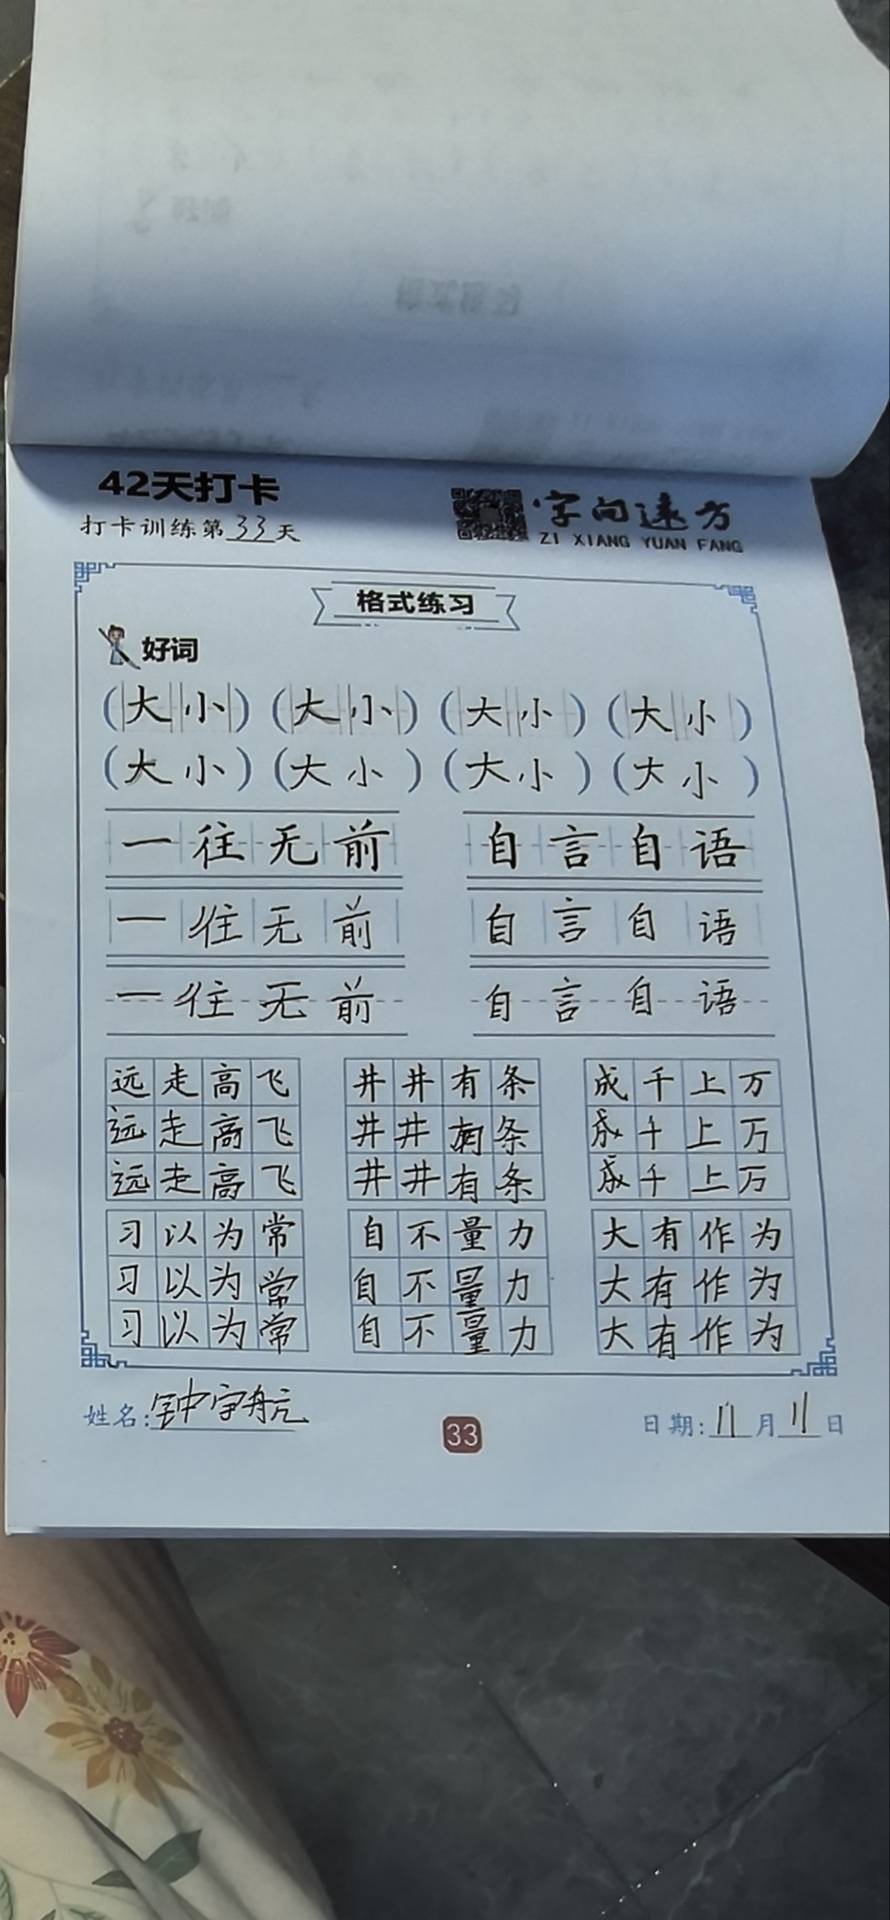 42天打卡
字向远方
打卡训练第33天
ZI XIANG YUAN FANG
格式练习
好词
(大小) (大小) (大小) (大小)
(大小) (大小) (大小) (大小)
一往无前 自言自语
一往无前 自言自语
一往无前 自言自语
远走高飞 井井有条 成千上万
远走高飞 井井有条 成千上万
远走高飞 井井有条 成千上万
习以为常 自不量力 大有作为
习以为常 自不量力 大有作为
习以为常 自不量力 大有作为
姓名:钟宇航 33 日期:11月11日